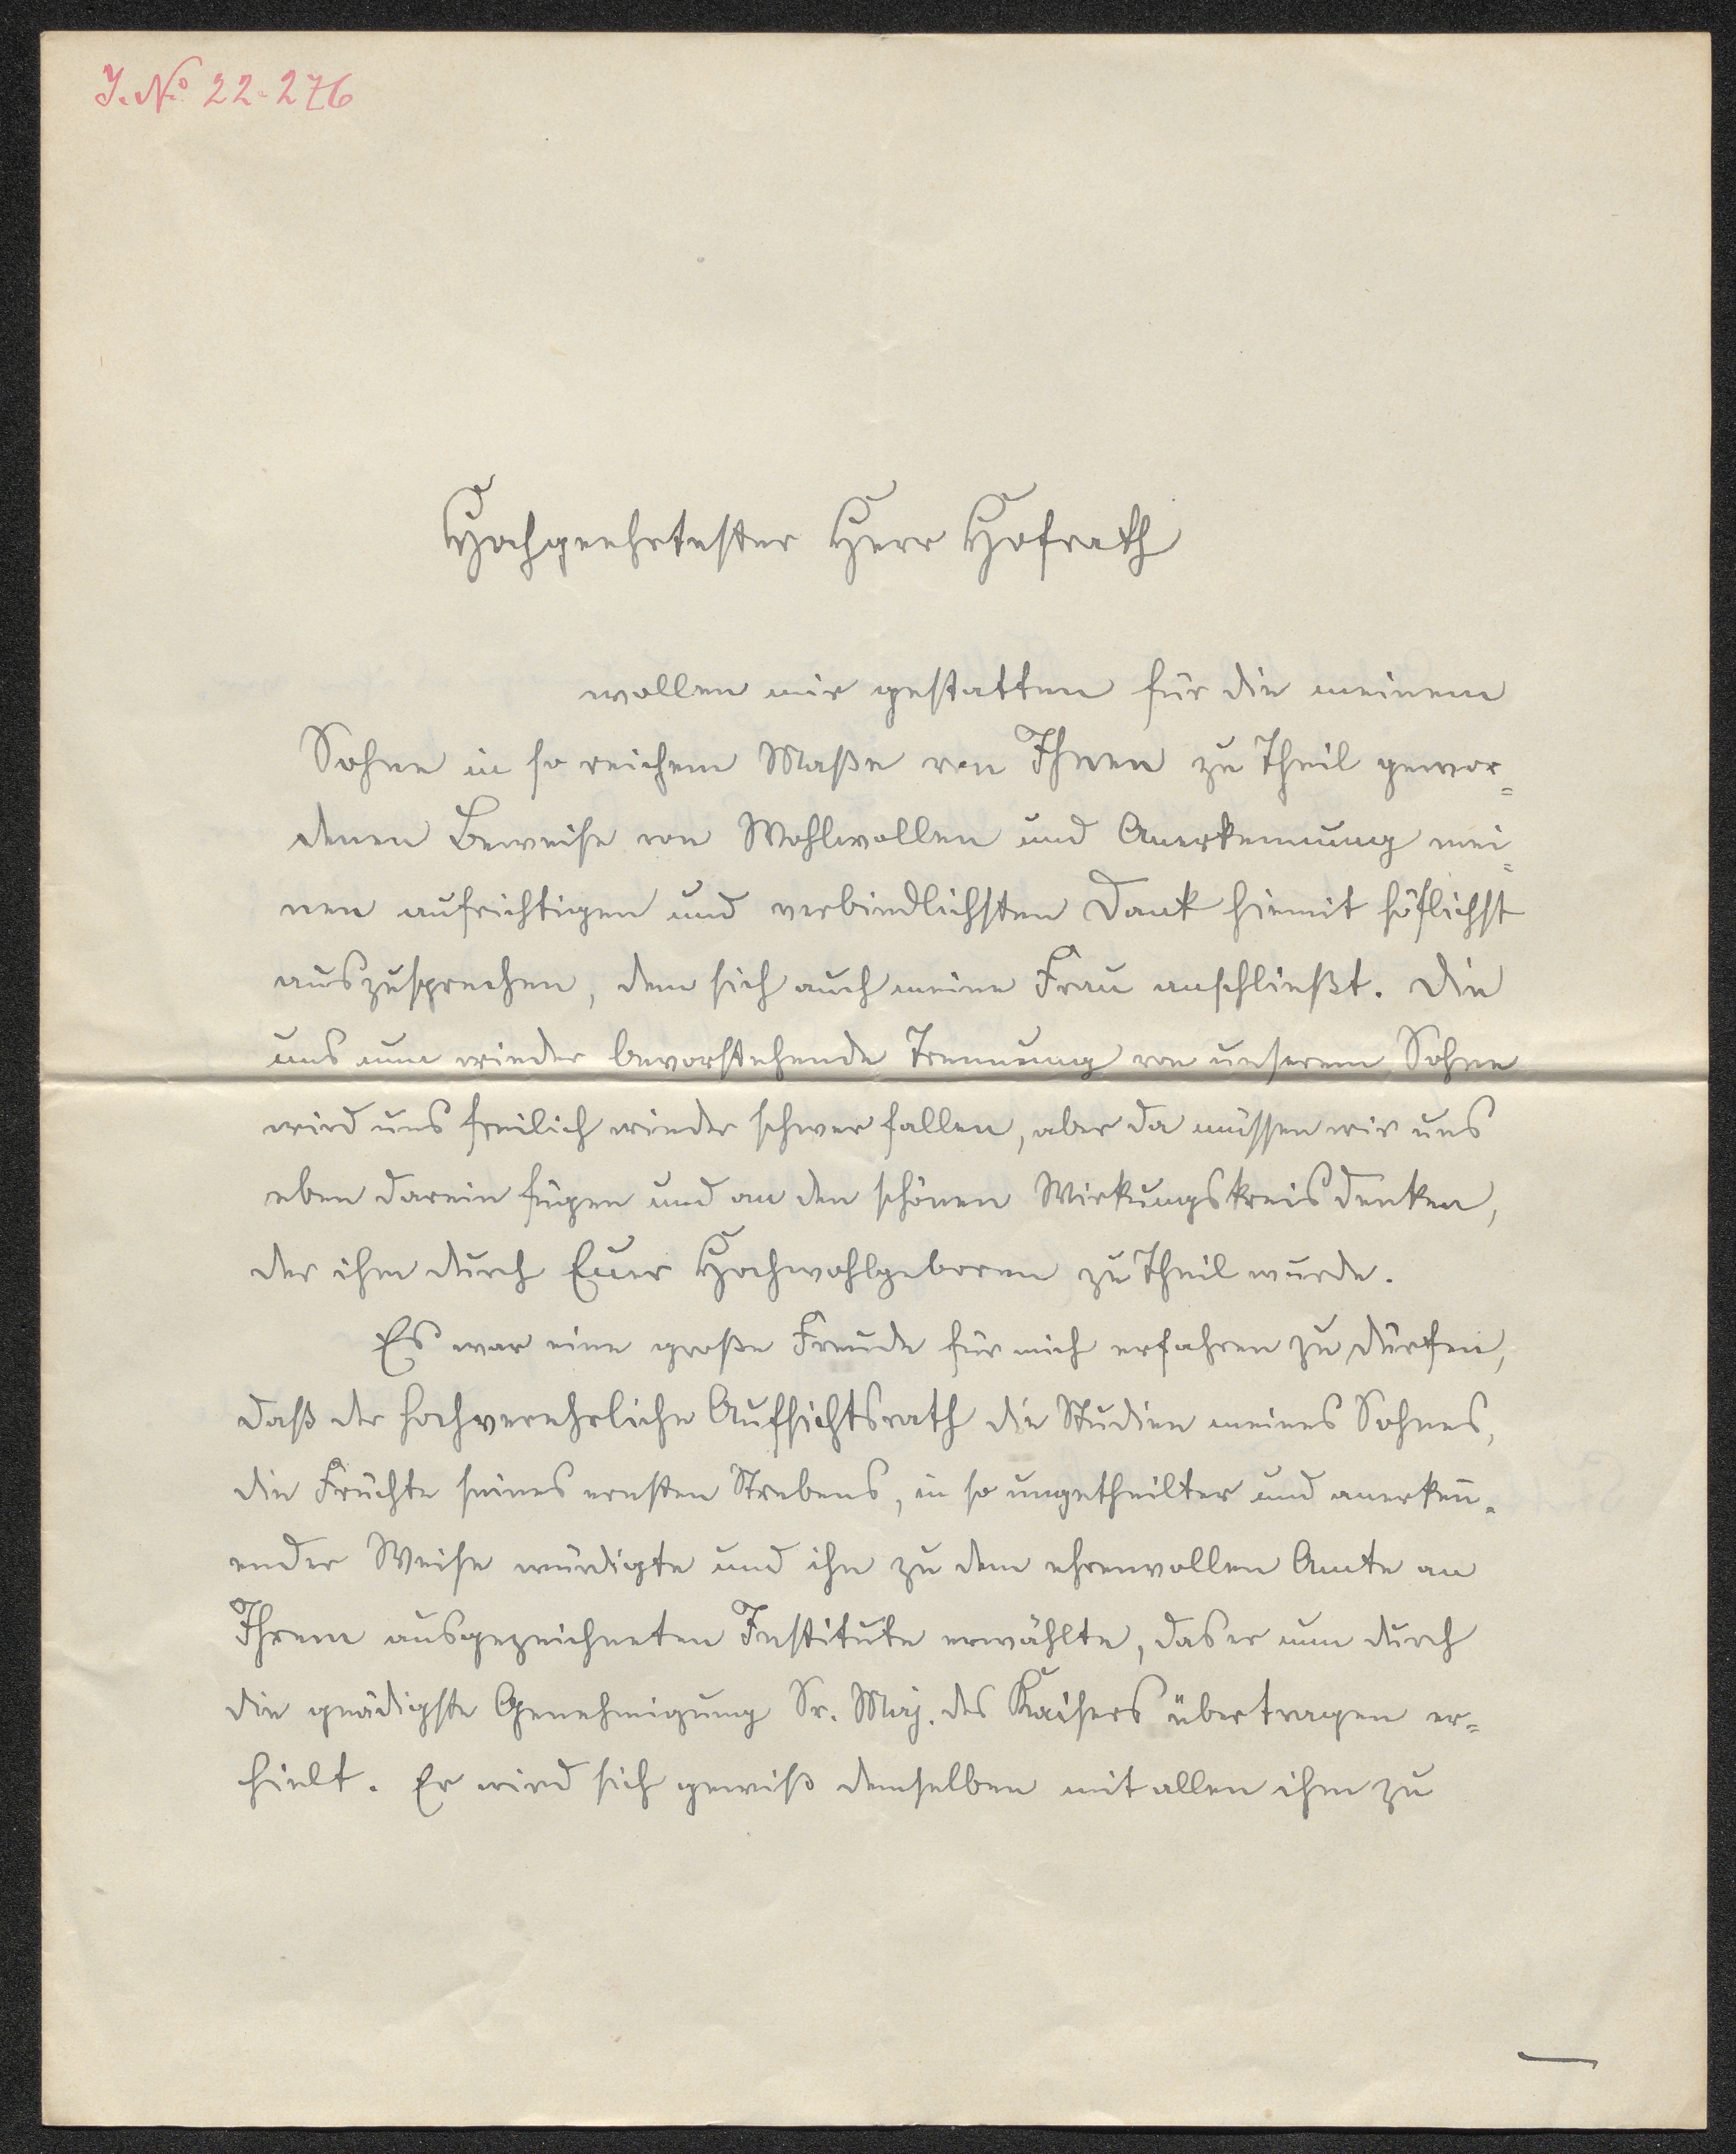 J. No 22-276
Hochgeehrtester Herr Hofrath
wollen mir gestatten für die meinem
Sohne in so reichem Maße von Ihnen zu Theil gewor=
denen Beweise von Wohlwollen und Anerkennung mei=
nen aufrichtigen und verbindlichsten Dank hiemit höflichst
auszusprechen, dem sich auch meine Frau anschließt. Die
uns nun wieder bevorstehende Trennung von unserem Sohne
wird uns freilich wieder schwer fallen, aber da müssen wir uns
eben darein fügen und an den schönen Wirkungskreis denken,
der ihm durch Euer Hochwohlgeboren zu Theil wurde.
Es war eine große Freude für mich erfahren zu dürfen,
daß der hochverehrliche Aufsichtsrath die Studien meines Sohnes,
die Früchte seines ernsten Strebens, in so ungetheilter und anerken̄=
ender Weise würdigte und ihn zu dem ehrenvollen Amte an
Ihrem ausgezeichneten Institute erwählte, das er nun durch
die gnädigste Genehmigung Sr. Maj. des Kaisers übertragen er=
hielt. Er wird sich gewiß demselben mit allen ihm zu